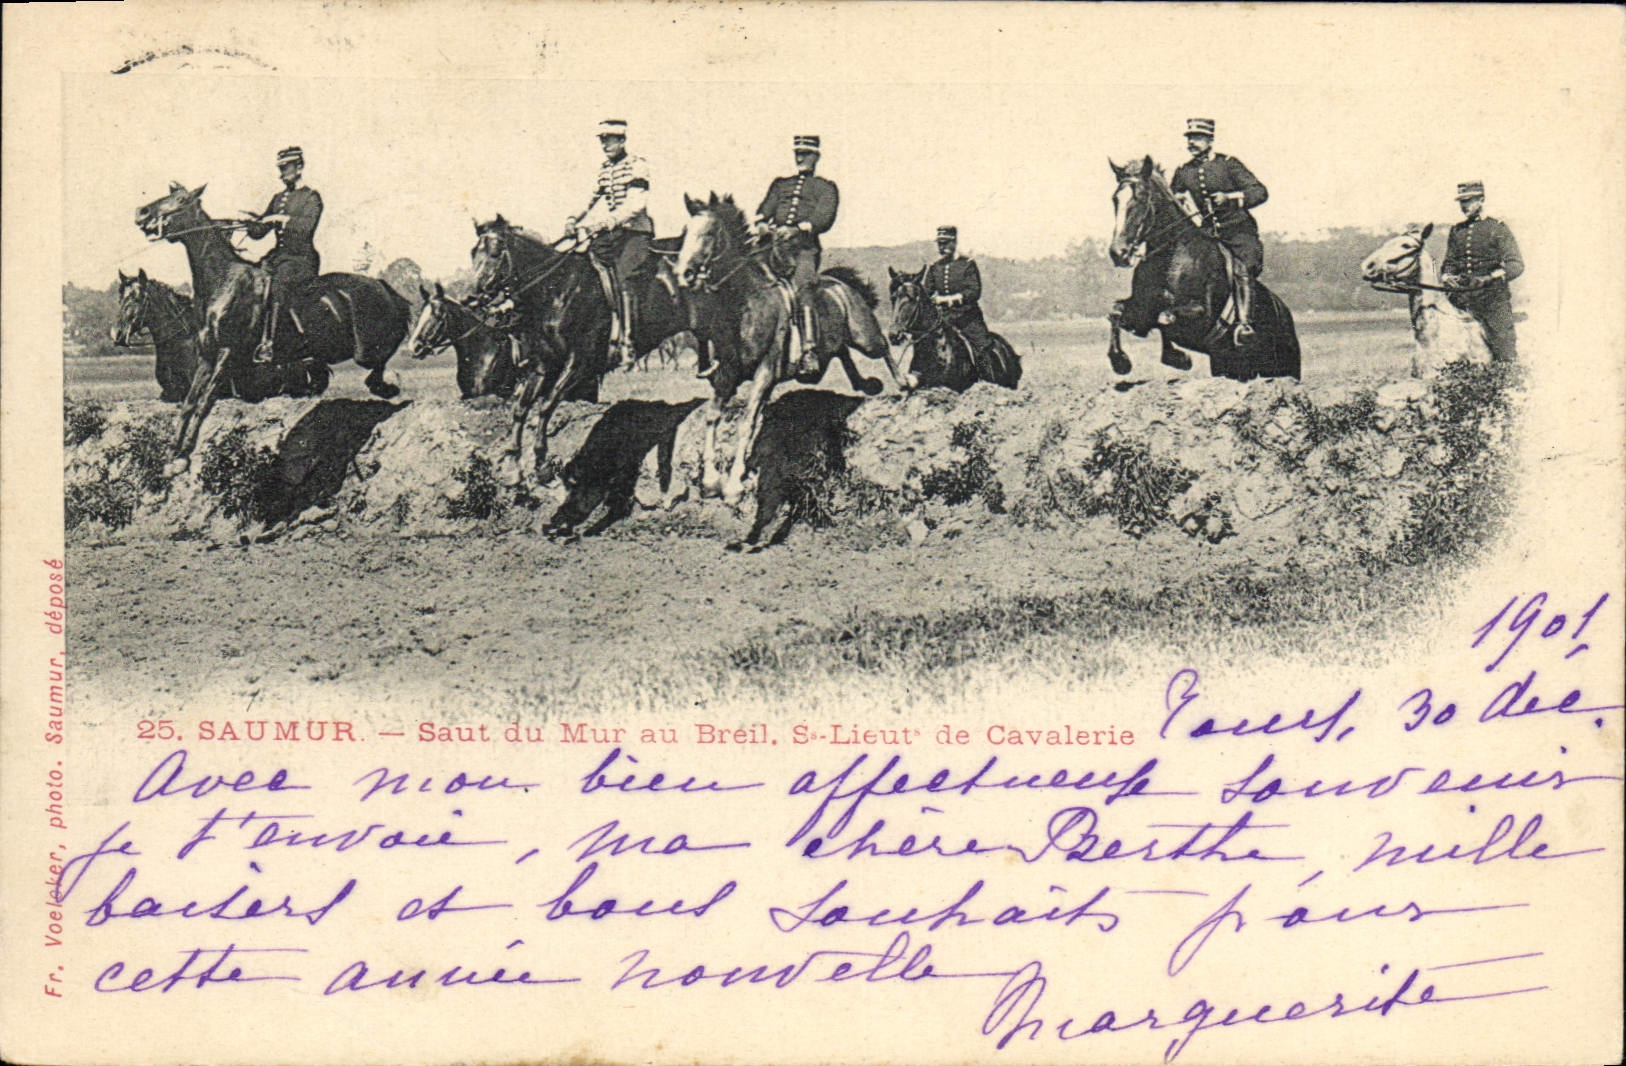 Fr. Voelcker, photo. Saumur, déposé
25. SAUMUR. — Saut du Mur au Breil. Ss-Lieuts de Cavalerie
1901,
Tours, 30 déc.
Avec mon bien affectueux souvenir
je t'envoie, ma chère Berthe, mille
baisers et bons souhaits pour
cette année nouvelle
Marguerite